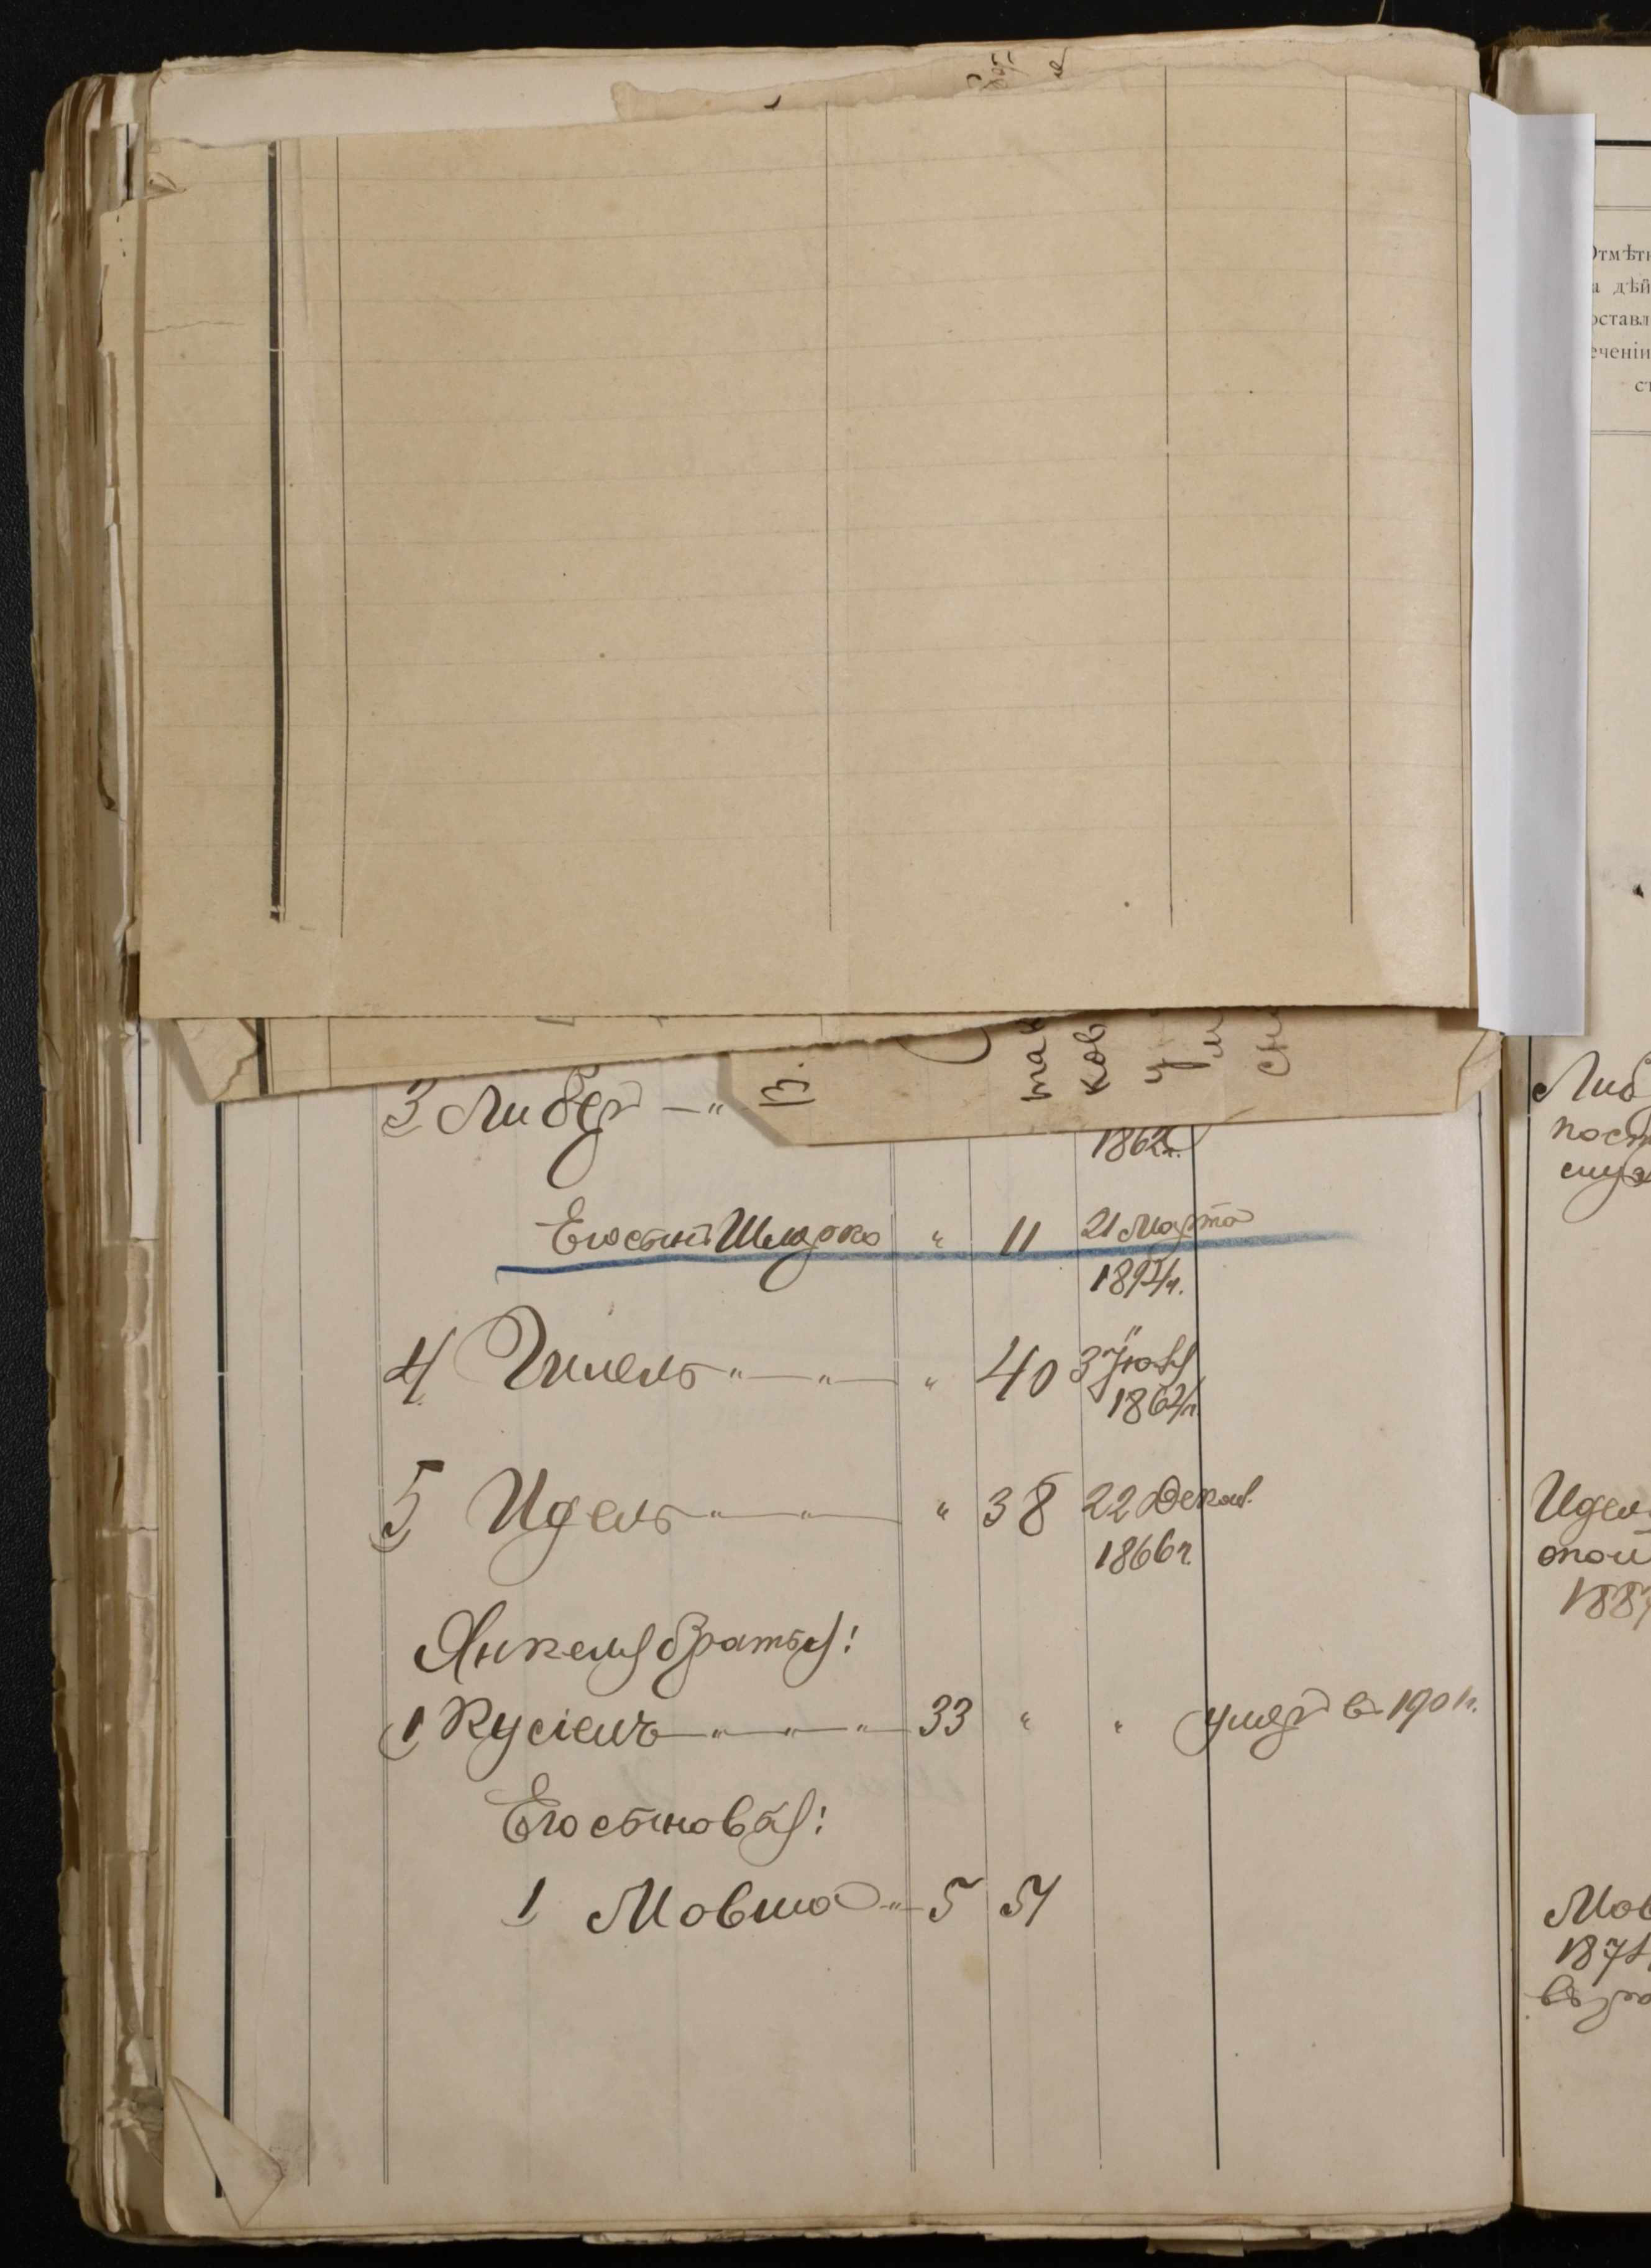 3 Либер — "
1862 г.
Его сынъ Шмерко " 11 21 Марта
189 г.
4 Гилель " — " — " 40 3 Іюля
1864 г.
5 Идель " — " — " 38 22 Декаб.
1866 г.
Янкеля братья:
1 Кусіель — " — " — " — 33 " " умеръ въ 1901 г.
Его сыновья:
1 Мовша — " — 5 54
В.
так
ков
у
Отмѣтк
а дѣй
оставл
еченіи
ст
Либ
пост
служ
Идел
1887
Мов
187